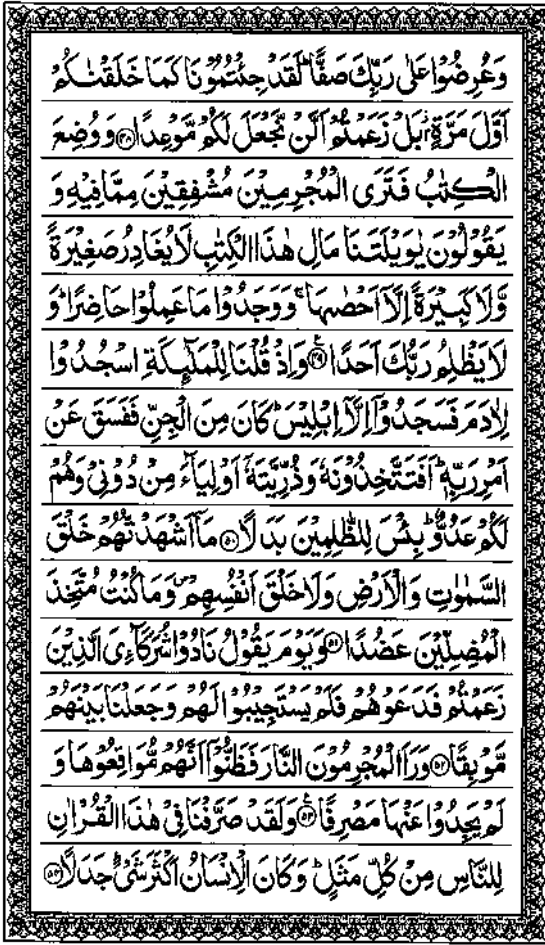 وَعُرِضُوۡا عَلٰى رَبِّكَ صَفًّا ؕ لَقَدۡ جِئۡتُمُوۡنَا كَمَا خَلَقۡنٰكُمۡ
اَوَّلَ مَرَّةٍۭ ؗ بَلۡ زَعَمۡتُمۡ اَلَّنۡ نَّجۡعَلَ لَكُمۡ مَّوۡعِدًا ﴿۴۸﴾ وَوُضِعَ
الۡكِتٰبُ فَتَرَى الۡمُجۡرِمِيۡنَ مُشۡفِقِيۡنَ مِمَّا فِيۡهِ وَ
يَقُوۡلُوۡنَ يٰوَيۡلَتَنَا مَالِ هٰذَا الۡكِتٰبِ لَا يُغَادِرُ صَغِيۡرَةً
وَّلَا كَبِيۡرَةً اِلَّاۤ اَحۡصٰٮهَا ۚ وَوَجَدُوۡا مَا عَمِلُوۡا حَاضِرًا ؕ وَ
لَا يَظۡلِمُ رَبُّكَ اَحَدًا ﴿۴۹﴾ وَاِذۡ قُلۡنَا لِلۡمَلٰٓٮِٕكَةِ اسۡجُدُوۡا
لِاٰدَمَ فَسَجَدُوۡۤا اِلَّاۤ اِبۡلِيۡسَ ؕ كَانَ مِنَ الۡجِنِّ فَفَسَقَ عَنۡ
اَمۡرِ رَبِّهٖ ؕ اَفَتَتَّخِذُوۡنَهٗ وَذُرِّيَّتَهٗۤ اَوۡلِيَآءَ مِنۡ دُوۡنِىۡ وَهُمۡ
لَكُمۡ عَدُوٌّ ؕ بِئۡسَ لِلظّٰلِمِيۡنَ بَدَلًا ﴿۵۰﴾ مَاۤ اَشۡهَدْتُّهُمۡ خَلۡقَ
السَّمٰوٰتِ وَالۡاَرۡضِ وَلَا خَلۡقَ اَنۡفُسِهِمۡ ص وَمَا كُنۡتُ مُتَّخِذَ
الۡمُضِلِّيۡنَ عَضُدًا ﴿۵۱﴾ وَيَوۡمَ يَقُوۡلُ نَادُوۡا شُرَكَآءِىَ الَّذِيۡنَ
زَعَمۡتُمۡ فَدَعَوۡهُمۡ فَلَمۡ يَسۡتَجِيۡبُوۡا لَهُمۡ وَجَعَلۡنَا بَيۡنَهُمۡ
مَّوۡبِقًا ﴿۵۲﴾ وَرَاَ الۡمُجۡرِمُوۡنَ النَّارَ فَظَنُّوۡۤا اَنَّهُمۡ مُّوَاقِعُوۡهَا وَ
لَمۡ يَجِدُوۡا عَنۡهَا مَصۡرِفًا ﴿۵۳﴾ وَلَقَدۡ صَرَّفۡنَا فِىۡ هٰذَا الۡقُرۡاٰنِ
لِلنَّاسِ مِنۡ كُلِّ مَثَلٍ ؕ وَكَانَ الۡاِنۡسَانُ اَكۡثَرَ شَىۡءٍ جَدَلًا ﴿۵۴﴾